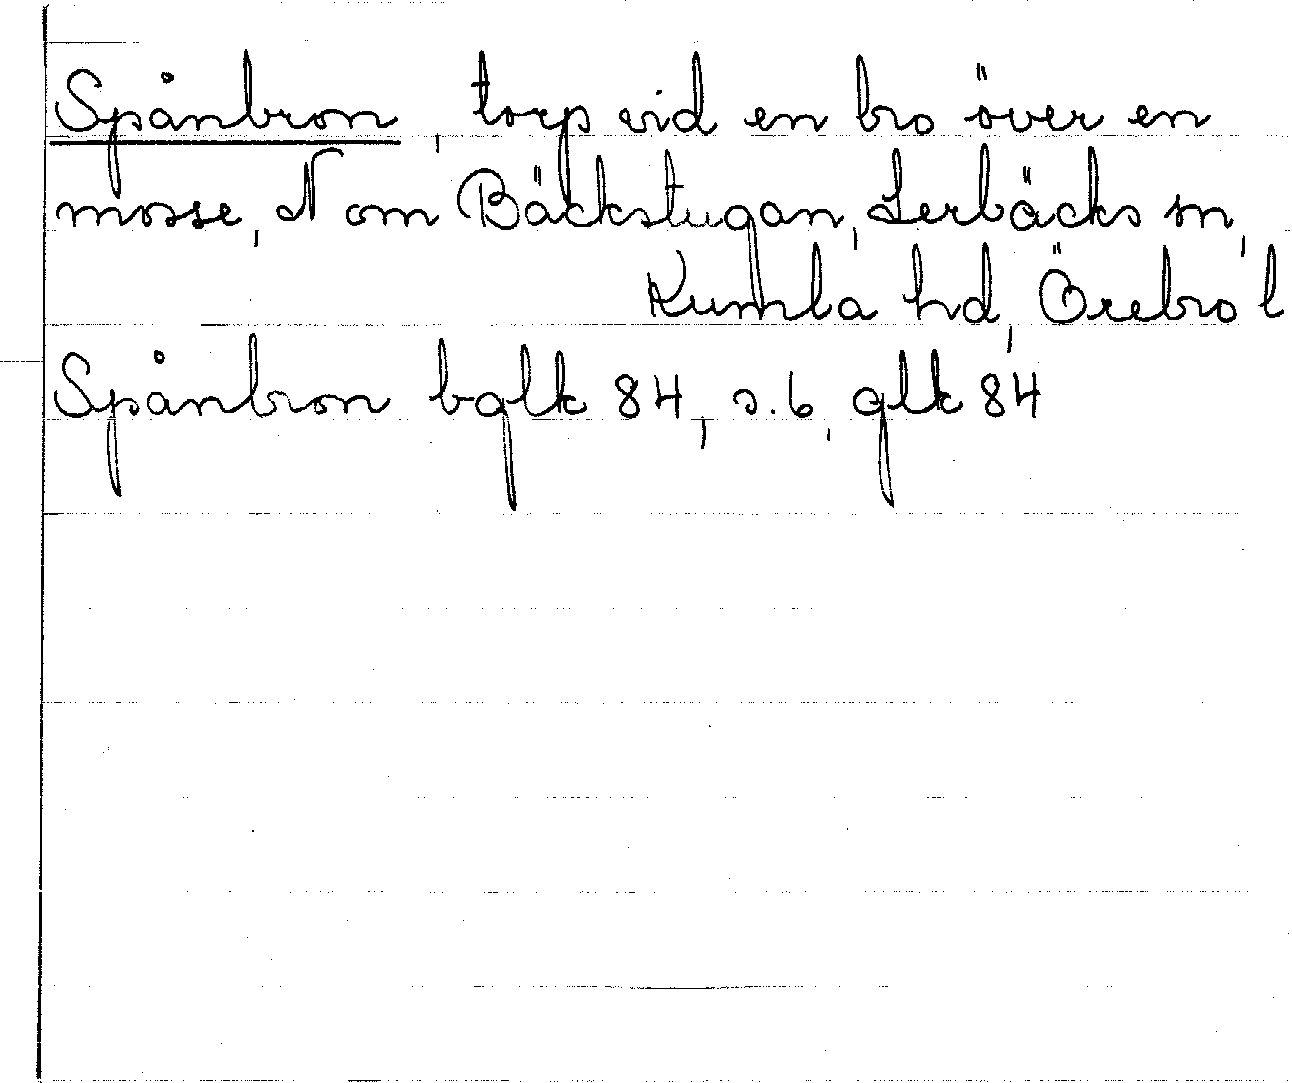 Spånbron, torp vid en bro över en
mosse, N om Bäckstugan, Lerbäcks sn,
Kumla hd, Örebro l
Spånbron bglk 84, s. 6, glk 84